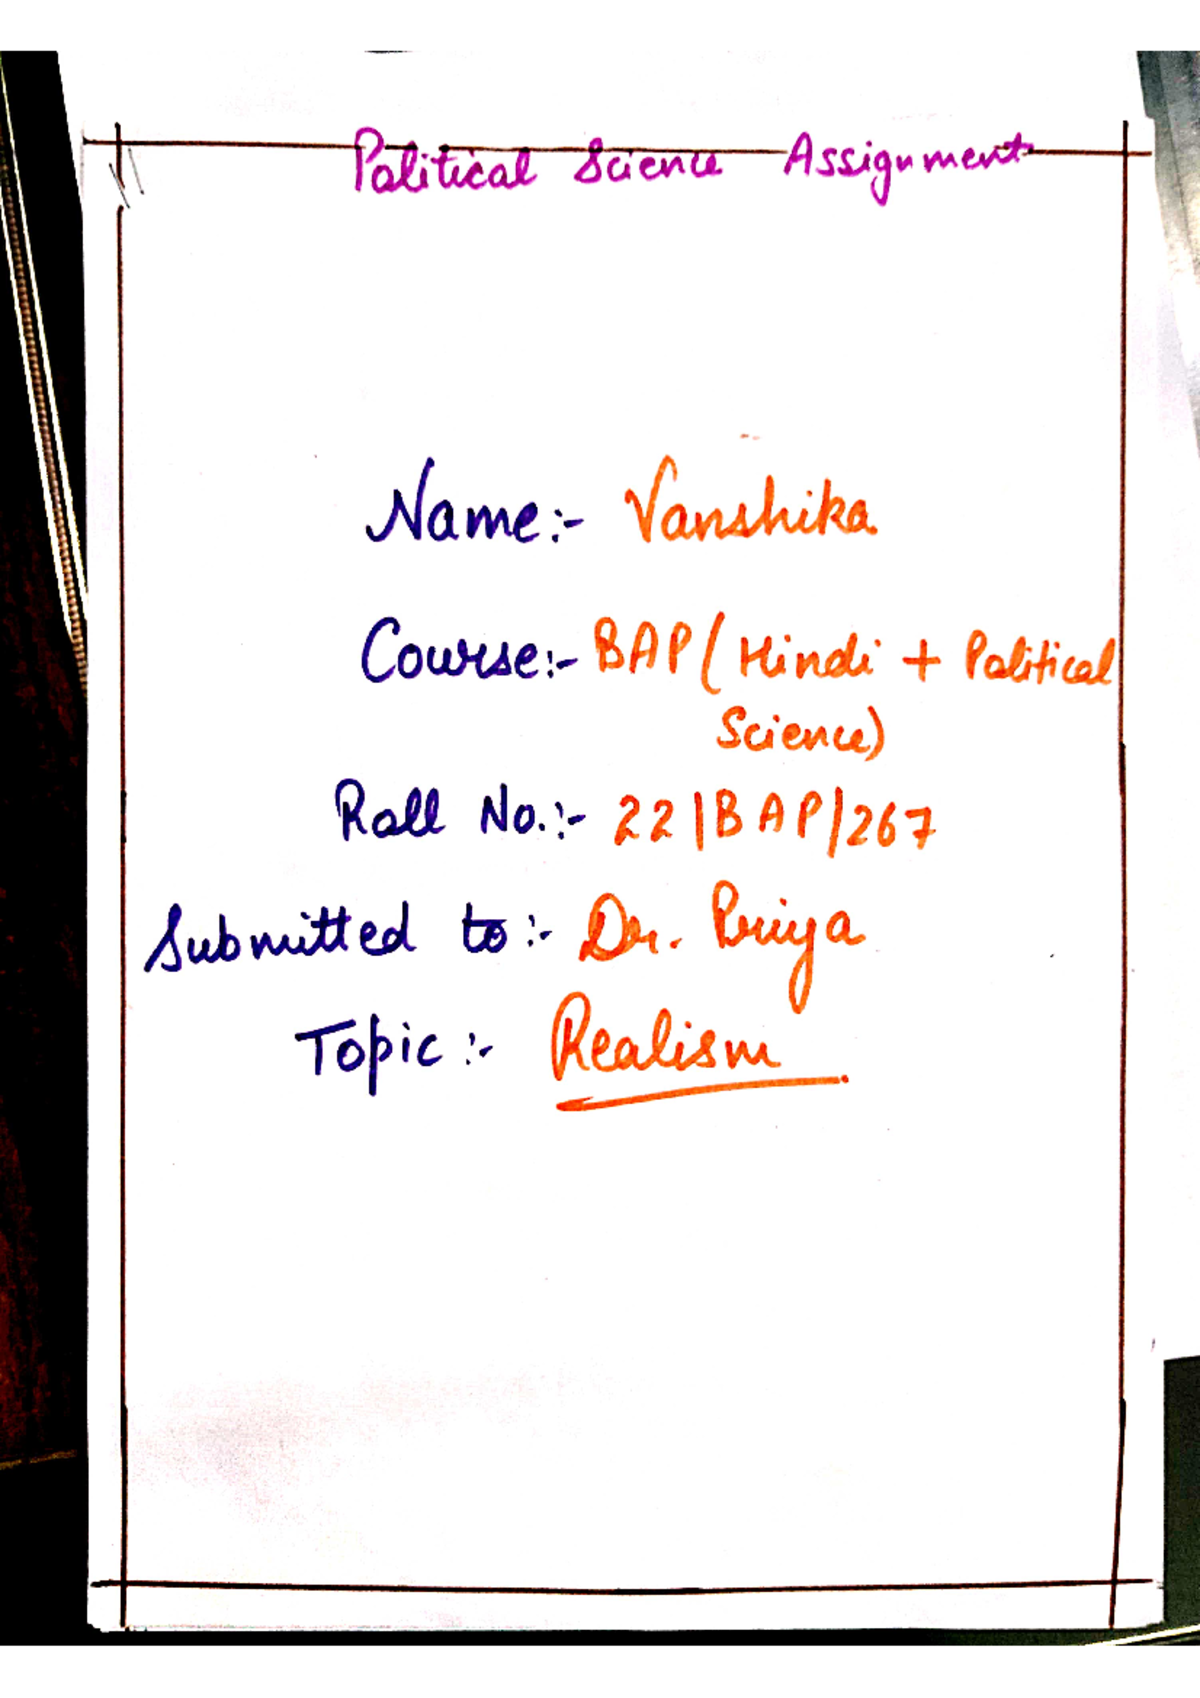 Political Science Assignment
Name:- Vanshika
Course:- BAP (Hindi + Political
Science)
Roll No.:- 22|BAP|267
Submitted to:- Dr. Priya
Topic:- Realism